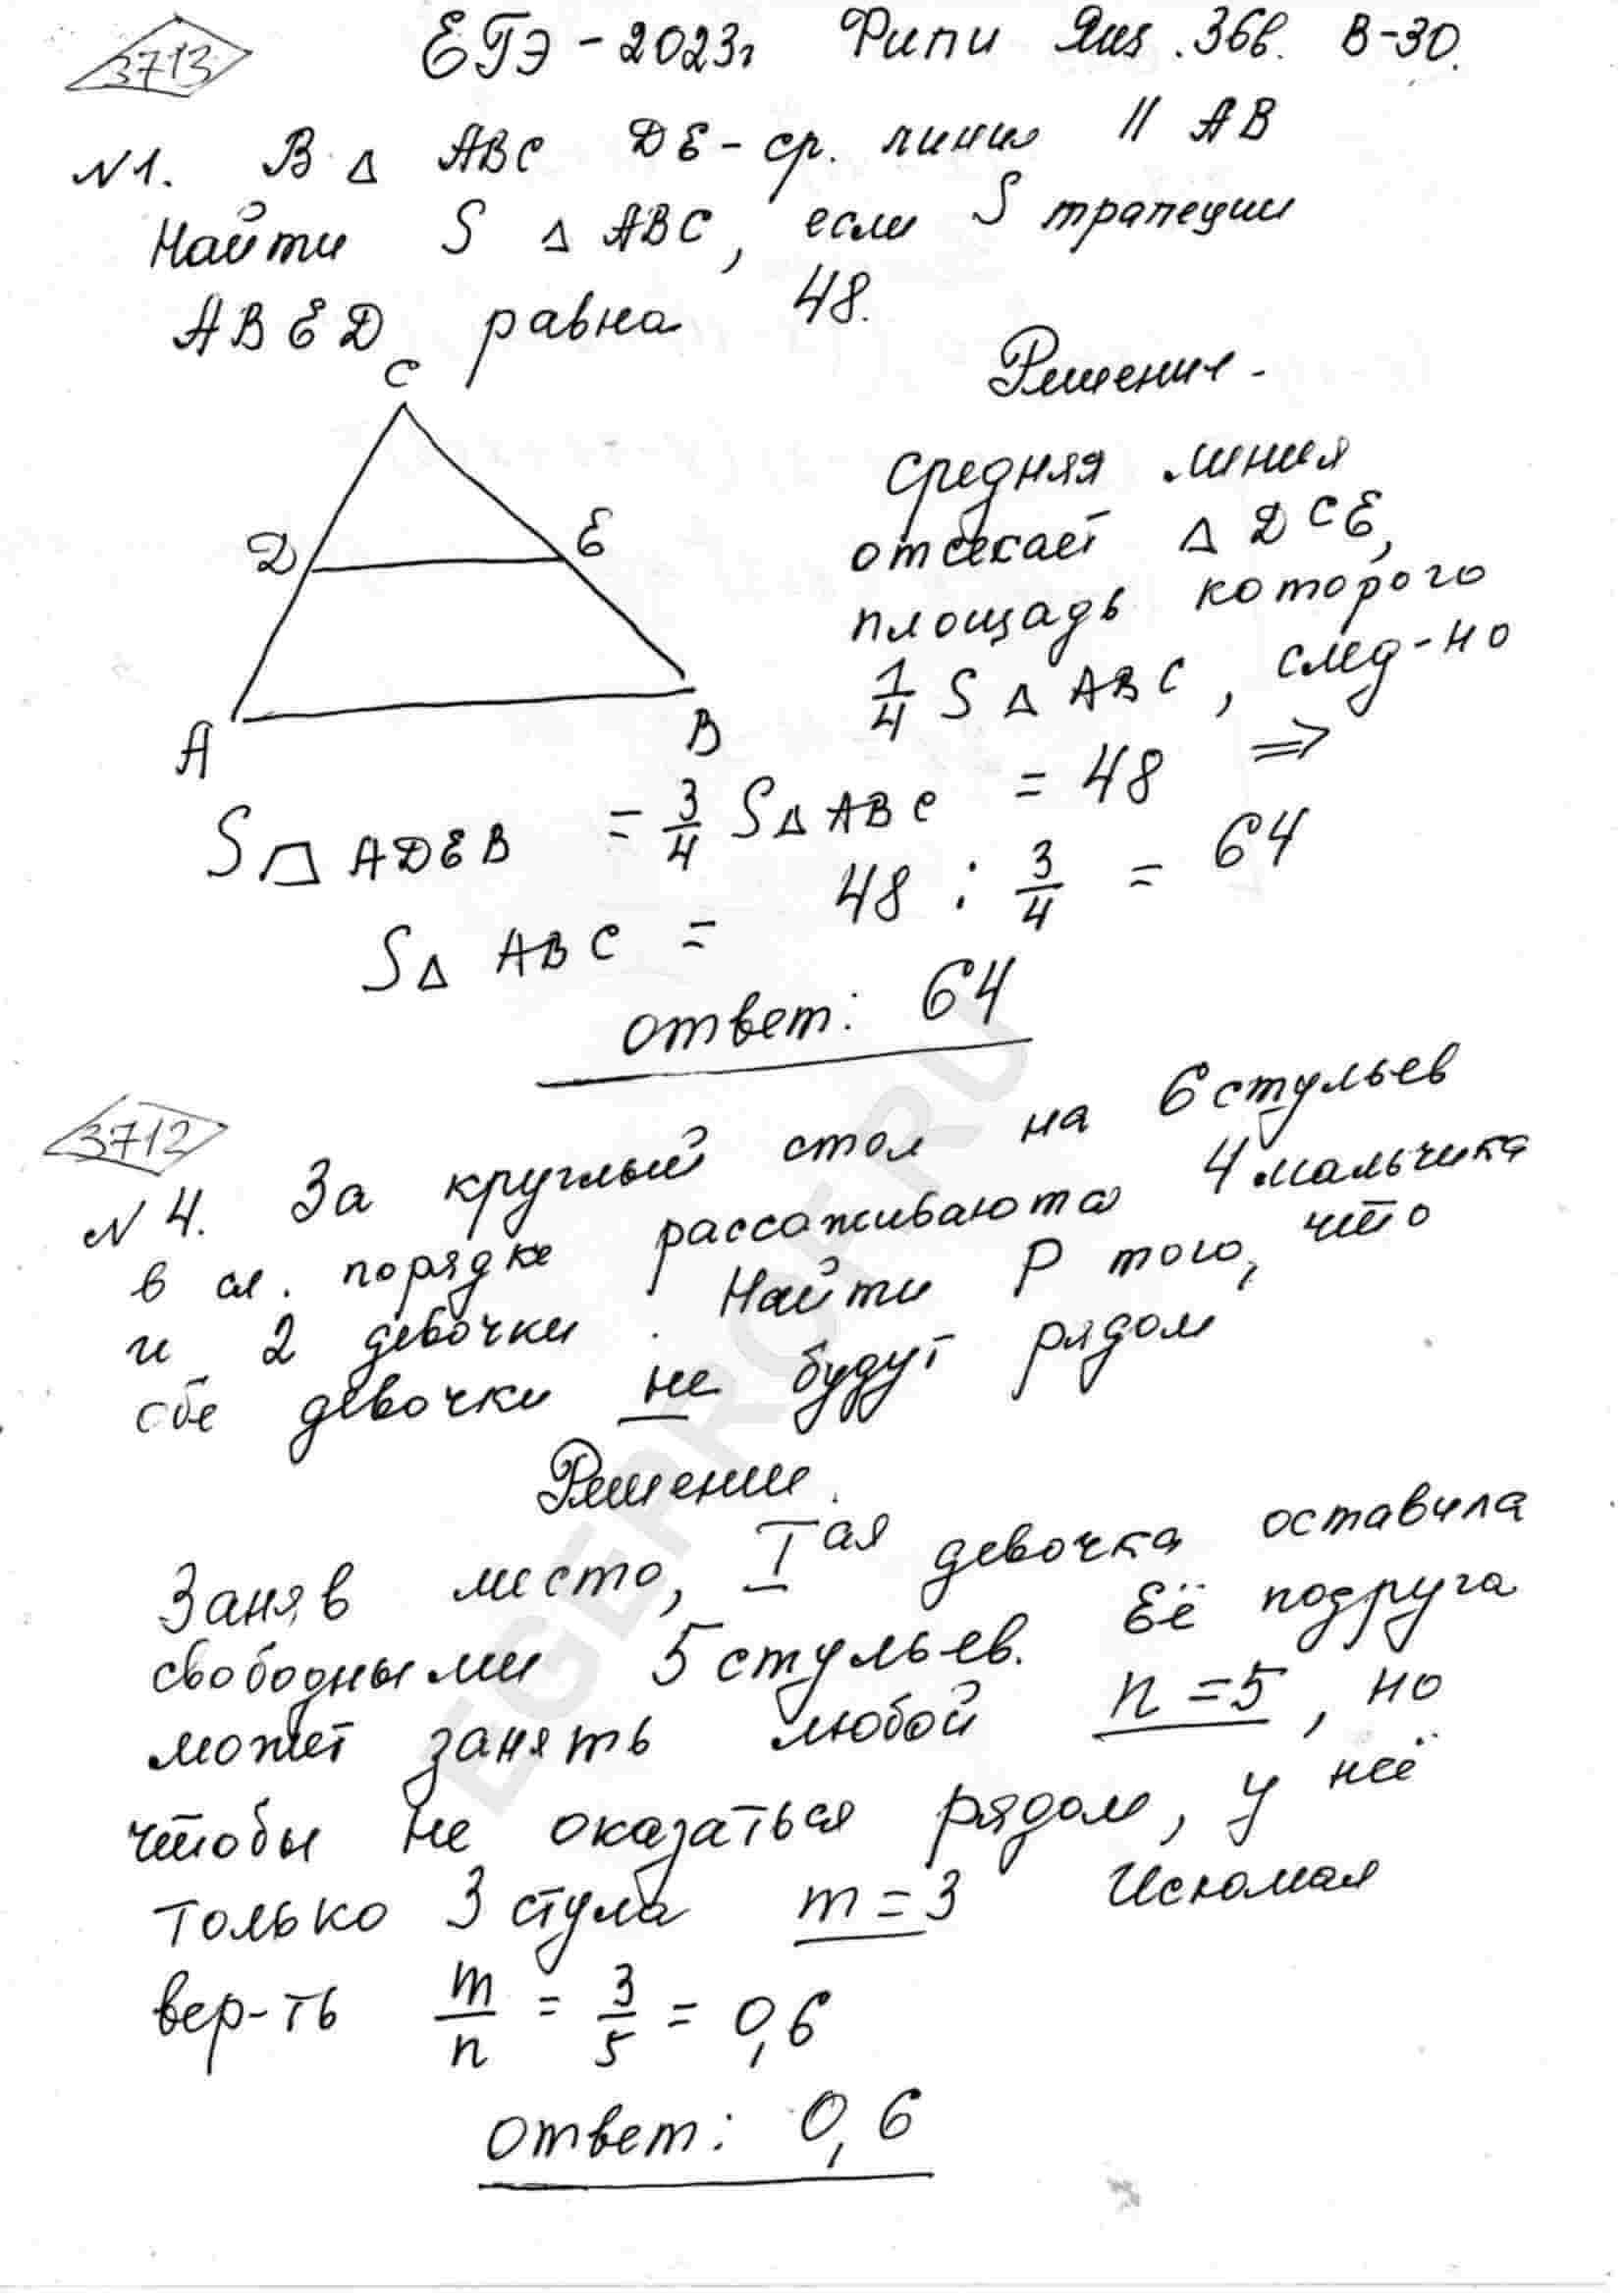 3713
ЕГЭ - 2023г Фипи Ящ. 36в. В-30.
№1. В △ ABC DE - ср. линия || AB
Найти S △ ABC, если S трапеции
ABED равна 48.
Решение.
C
D
E
A
B
Средняя линия
отсекает △ DCE,
площадь которого
1/4 S △ ABC, след-но
S ADEB = 3/4 S△ ABC = 48 ⇒
S△ ABC = 48 : 3/4 = 64
ответ: 64
3712
№4. За круглый стол на 6 стульев
в сл. порядке рассаживаются 4 мальчика
и 2 девочки. Найти P того, что
обе девочки не будут рядом
Решение.
Заняв место, I ая девочка оставила
свободными 5 стульев. Её подруга
может занять любой n = 5, но
чтобы не оказаться рядом, у неё
только 3 стула m = 3 Искомая
вер-ть m/n = 3/5 = 0,6
ответ: 0,6
EGEPROF.RU